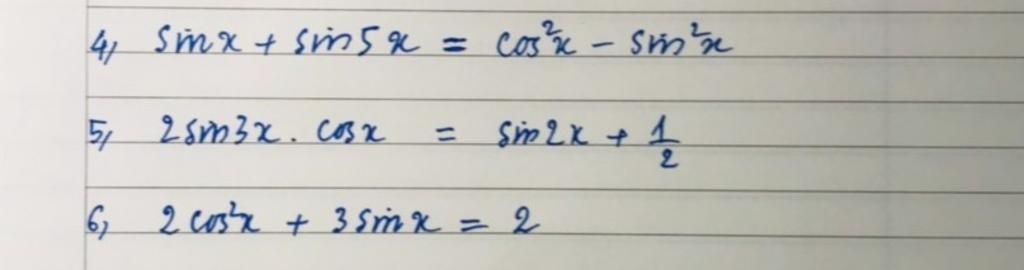 4, sinx + sin5x = cos²x - sin²x
5, 2sin3x . cosx = sin2x + 1/2
6, 2cos²x + 3sinx = 2